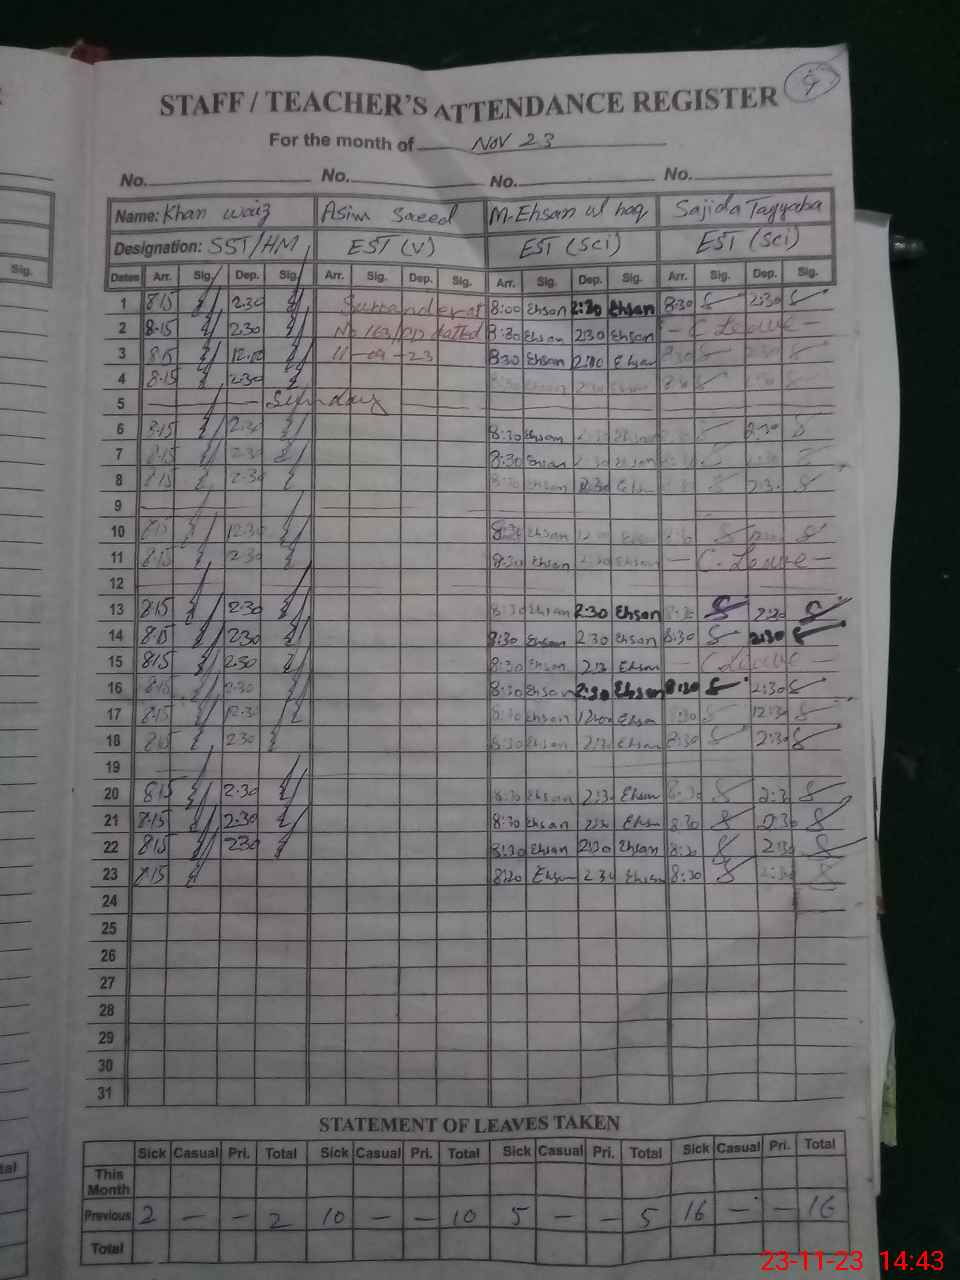 9
STAFF / TEACHER'S ATTENDANCE REGISTER
For the month of Nov 23
No. No. No. No.
Name: Khan Waiz Asim Saeed M-Ehsan ul haq Sajida Tayyaba
Designation: SST/HM EST (V) EST (Sci) EST (Sci)
Dates Arr. Sig. Dep. Sig. Arr. Sig. Dep. Sig. Arr. Sig. Dep. Sig. Arr. Sig. Dep. Sig.
1 8.15 2.30 8:00 Ehsan 2:30 Ehsan 8:30 2:30
2 8.15 2.30 No 163/ dated 8:30 Ehsan 2:30 Ehsan - C Leave -
3 8.15 11-09-23 8:30 Ehsan 2:30 Ehsan 8:30
4 8.15 2.30 8:30 Ehsan 2:30 Ehsan 8:30
5 Sunday
6 8.15 2.30 8:30 Ehsan 2:30 Ehsan 2:30
7 8.15 2.30 8:30 Ehsan 2:30 Ehsan
8 8.15 2.30 8:30 Ehsan 2:30 2:30
9
10 8.15 12.30 8:30 Ehsan Ehsan
11 8.15 2.30 8:30 Ehsan 2:30 Ehsan - C. Leave -
12
13 8.15 2.30 8:30 Ehsan 2:30 Ehsan 8:30 2:30
14 8.15 2.30 8:30 Ehsan 2:30 Ehsan 8:30 2:30
15 8.15 2.30 8:30 Ehsan 2:3 Ehsan - C Leave -
16 8.15 2.30 8:30 Ehsan 2:30 Ehsan 8:30 2:30
17 8.15 12.30 8:30 Ehsan 12:00 Ehsan 8:30 12:30
18 8.15 2.30 8:30 Ehsan 2:30 Ehsan 8:30 2:30
19
20 8.15 2.30 8:30 Ehsan 2:30 Ehsan 8:30 2:30
21 8.15 2.30 8:30 Ehsan 2:30 Ehsan 8:30 2:30
22 8.15 2.30 8:30 Ehsan 2:30 Ehsan 8:30 2:30
23 8.15 8:30 Ehsan 2:30 Ehsan 8:30 2:30
24
25
26
27
28
29
30
31
STATEMENT OF LEAVES TAKEN
Sick Casual Pri. Total Sick Casual Pri. Total Sick Casual Pri. Total Sick Casual Pri. Total
This Month
Previous 2 - - 2 10 - - 10 5 - - 5 16 - - 16
Total
Sig.
tal
23-11-23 14:43